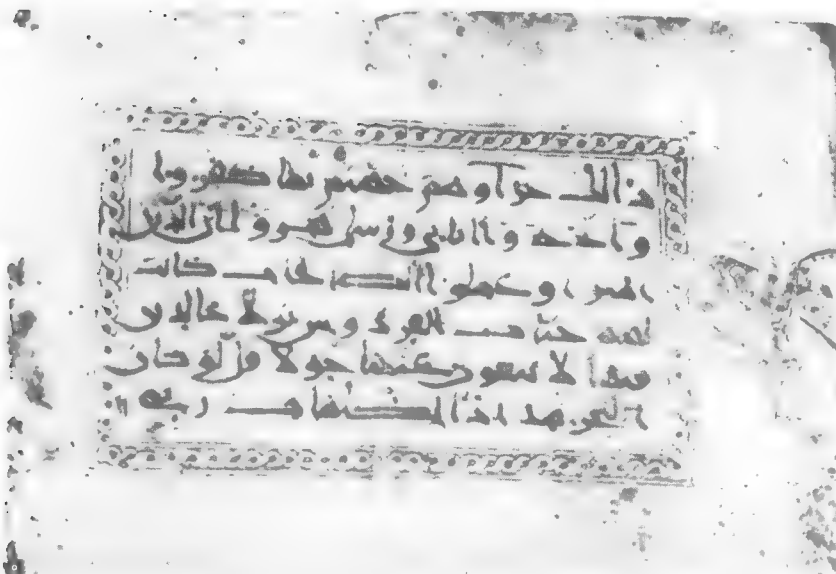 ذلك جزاوهم جهنم بما كفروا
واتخذوا ايتى ورسلى هزوا ان الذين
امنوا وعملوا الصلحت كانت
لهم جنت الفردوس نزلا خالدين
فيها لا يبغون عنها حولا قل لو كان
البحر مدادا لكلمت ربى